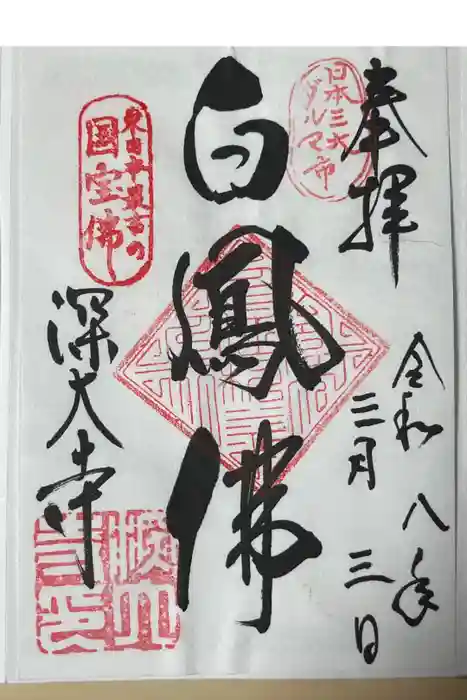 奉拝
日本三大
ダルマ市
令和八年
三月三日
白鳳佛
東日本最古の
国宝佛
深大寺